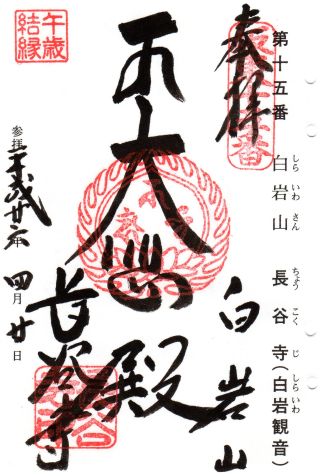 第十五番 白岩山 長谷寺(白岩観音)
しら いわ さん ちょう こく じ しら いわ
奉拝
白岩山
大悲殿
長谷寺
午歳
結縁
参拝 平成廿六年 四月廿日